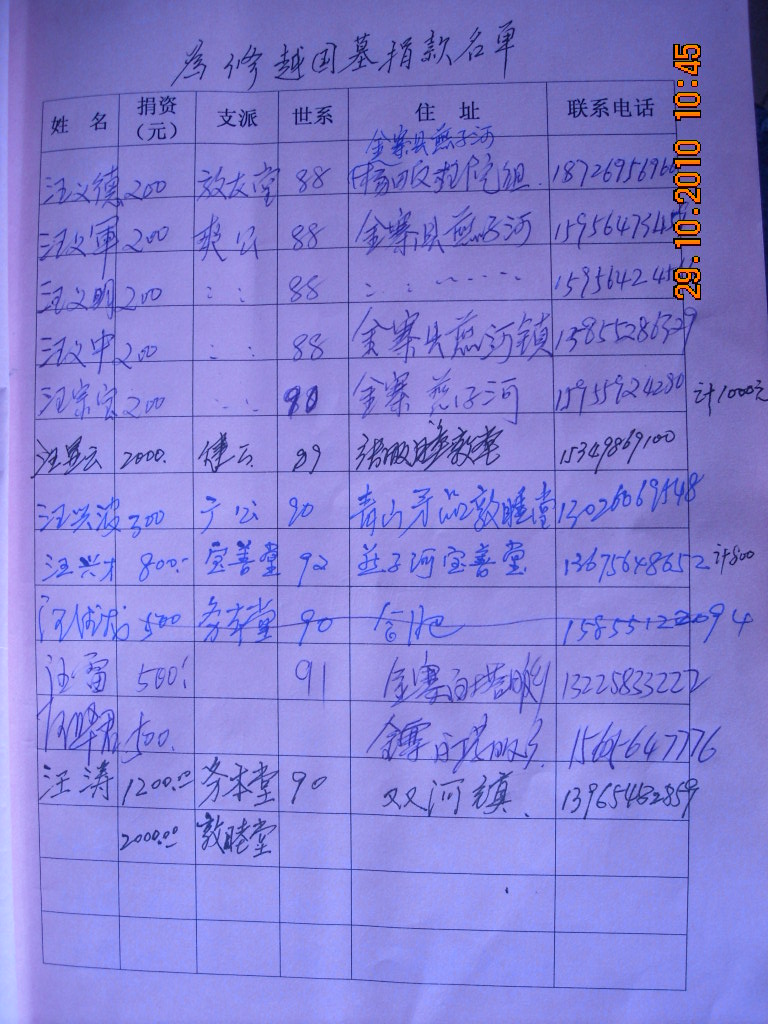 為修越国墓捐款名单
姓 名 捐资（元） 支派 世系 住 址 联系电话
金寨县燕子河
汪义德 200 敦友堂 88 组 187269569
汪义軍 200 爽公 88 金寨县燕子河 159564734
汪义明 200 : : 88 : : 159564245
汪义中 200 : : 88 金寨县燕河镇 13855286329
汪宗宝 200 : : 90 金寨 燕子河 15955924280 计1000元
汪显云 2000. 健公 89 敦堂 15349869100
汪兴波 300 公 90 青山茅坪敦睦堂 13026069548
汪兴才 800.- 宝善堂 92 燕子河宝善堂 13675648652 计800
汪 500 务本堂 90 合肥 15855122094
汪雷 500 91 金寨白塔畈 13225833222
500. 金寨白塔畈乡
汪涛 1200.00 务本堂 90 双河镇 13965482859
2000.00 敦睦堂
29.10.2010 10:45